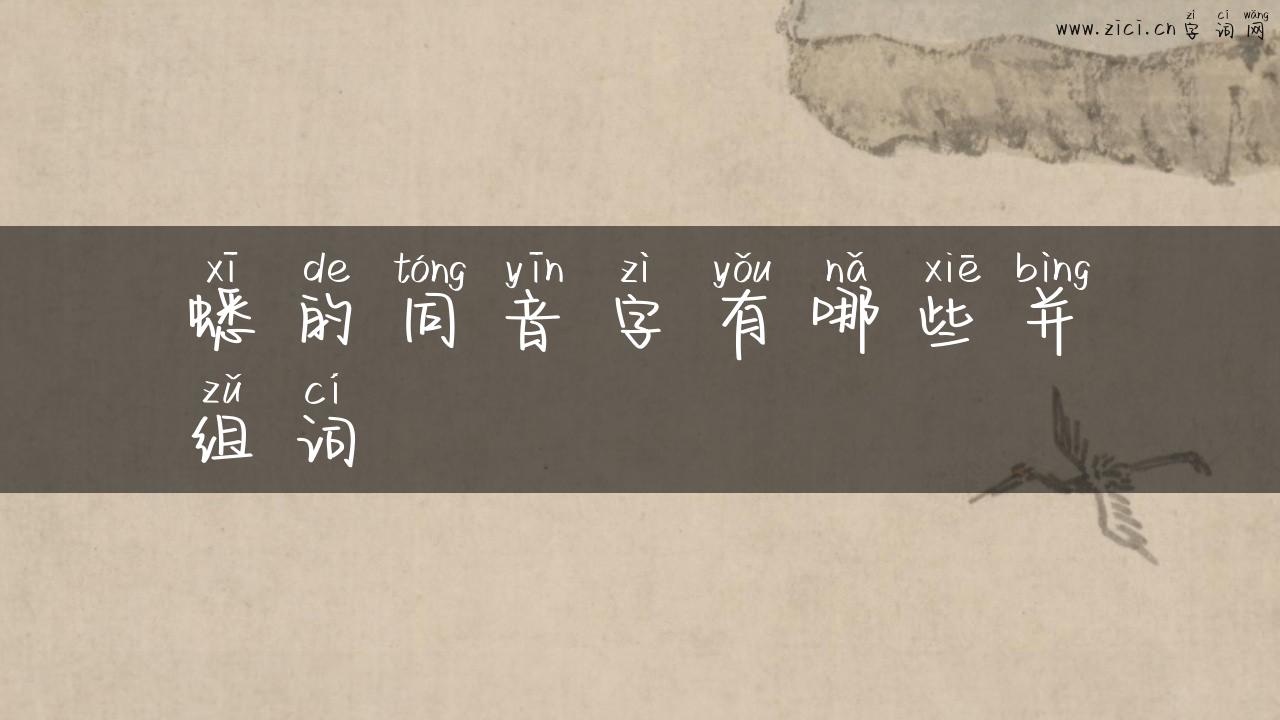 zì cí wǎng
www.zici.cn字词网
xī de tóng yīn zì yǒu nǎ xiē bìng
蟋的同音字有哪些并
zǔ cí
组词